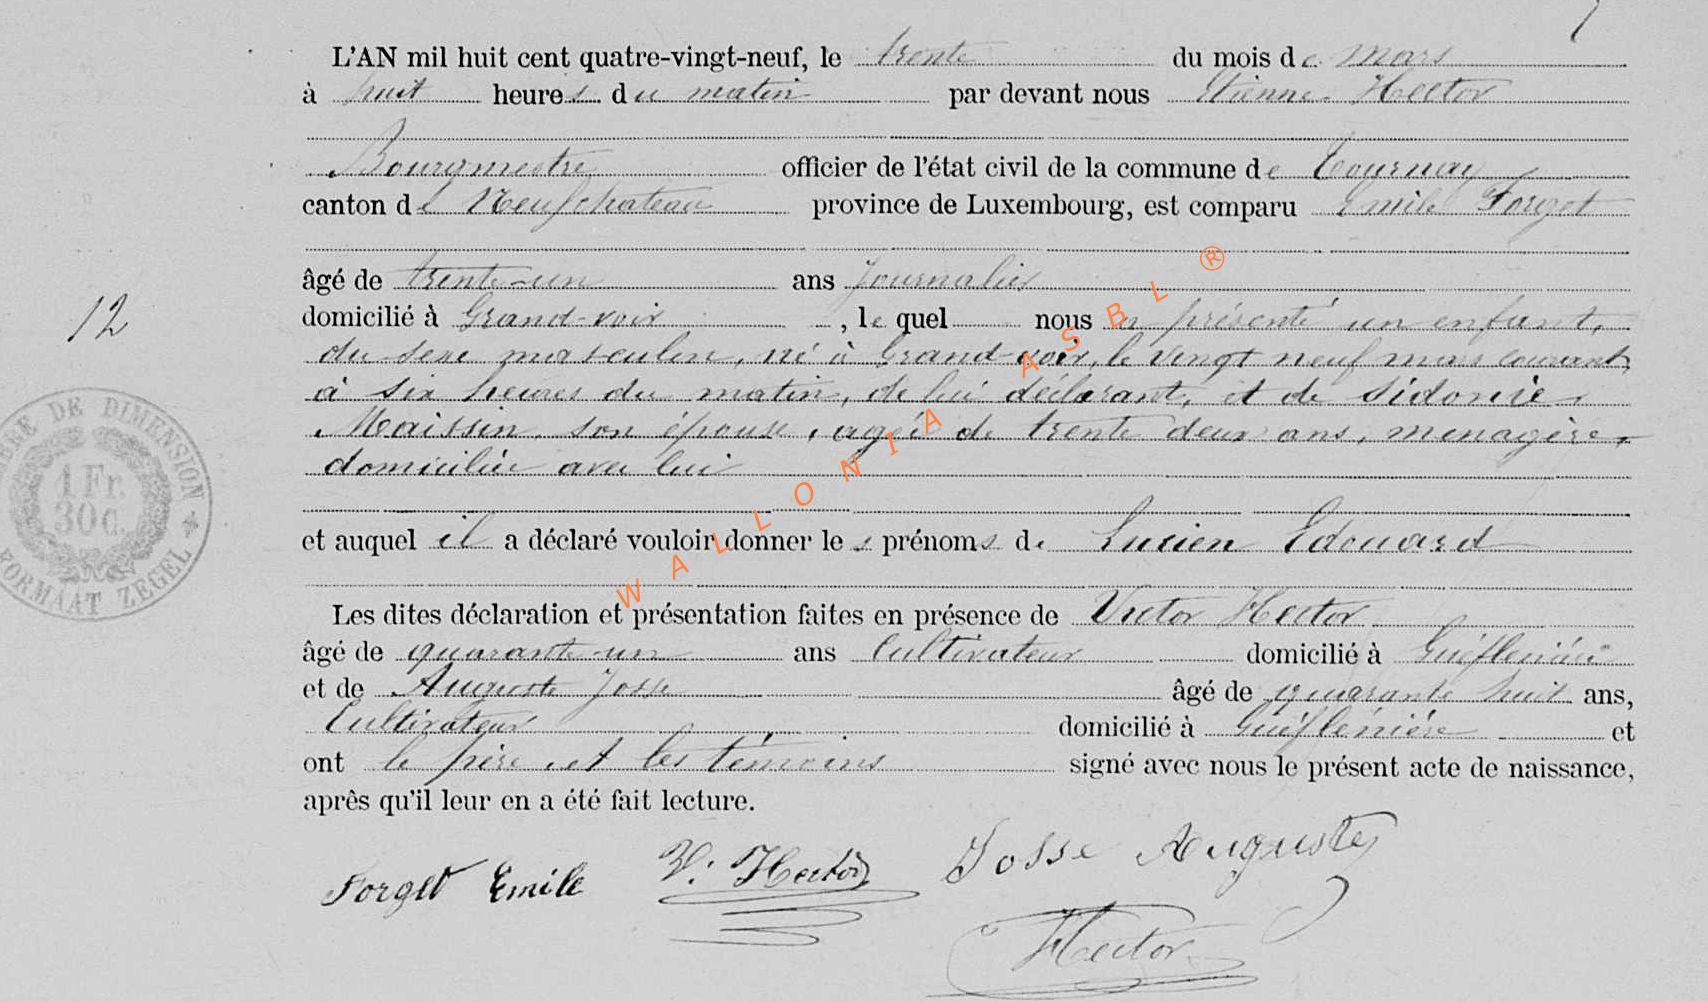 L'AN mil huit cent quatre-vingt-neuf, le trente du mois de mars
à huit heures du matin par devant nous Etienne Hector
Bourgmestre officier de l'état civil de la commune de Tournay
canton de Neufchateau province de Luxembourg, est comparu Emile Forget
âgé de trente-un ans Journalier
12
domicilié à Grand-voir, le quel nous a présenté un enfant,
du sexe masculin, né à Grand-voir, le vingt neuf mars courant,
à six heures du matin, de lui déclarant, et de Sidonie
Maissin, son épouse, agée de trente deux ans, menagère,
domiciliée avec lui
et auquel il a déclaré vouloir donner les prénoms de Lucien Edouard
Les dites déclaration et présentation faites en présence de Victor Hector
âgé de quarante-un ans Cultivateur domicilié à
et de Auguste Josse âgé de quarante huit ans,
Cultivateur domicilié à et
ont le père et les témoins signé avec nous le présent acte de naissance,
après qu'il leur en a été fait lecture.
Forget Emile V. Hector Josse Auguste
Hector
TIMBRE DE DIMENSION
1 Fr.
30 c.
FORMAAT ZEGEL
WALLONIA ASBL ®